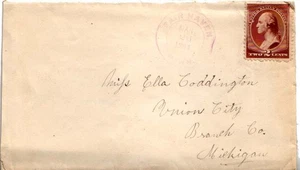 TWO 2 CENTS
Miss Ella Coddington
Union City
Branch Co.
Michigan